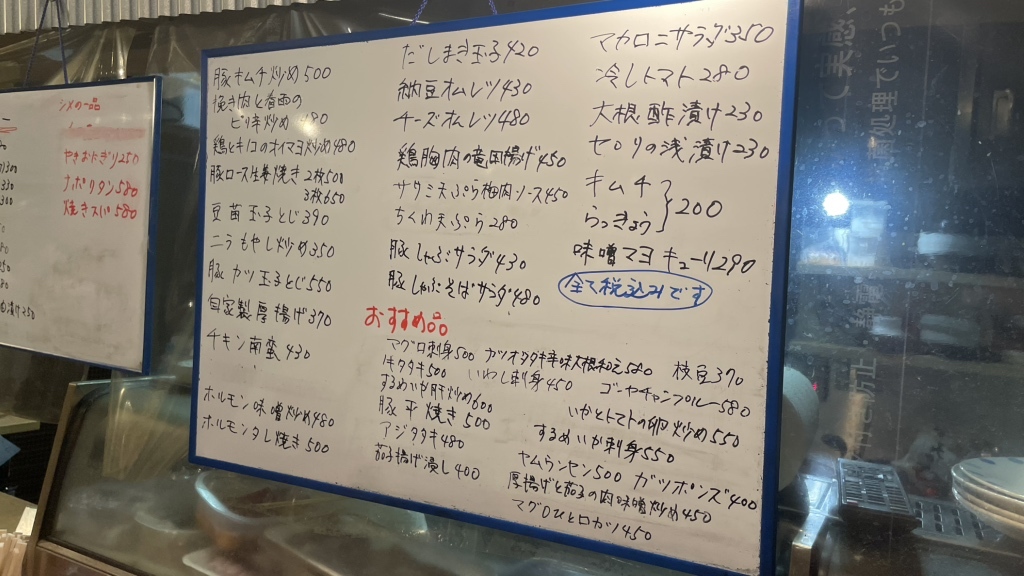 シメの一品
やきおにぎり250
ナポリタン580
焼きそば580
豚キムチ炒め500
挽き肉と春雨の
ピリ辛炒め 480
鶏とキノコのオイマヨ炒め480
豚ロース生姜焼き 2枚500
3枚650
豆苗玉子とじ390
ニラもやし炒め350
豚カツ玉子とじ550
自家製厚揚げ370
チキン南蛮430
ホルモン味噌炒め480
ホルモンタレ焼き500
だしまき玉子420
納豆オムレツ430
チーズオムレツ480
鶏胸肉の竜田揚げ450
ササミ天ぷら梅肉ソース450
ちくわ天ぷら280
豚しゃぶサラダ430
豚しゃぶそばサラダ480
マカロニサラダ350
冷しトマト280
大根酢漬け230
セロリの浅漬け230
キムチ
らっきょう
200
味噌マヨキューリ290
全て税込みです
おすすめ品
マグロ刺身500 カツオタタキ辛味大根和え580 枝豆370
タタキ500 いわし刺身450 ゴーヤチャンプルー580
するめいか肝炒め600 いかとトマトの卵炒め550
豚平焼き500 するめいか刺身550
アジタタキ480 ヤムウンセン500 ガツポンズ400
茄子揚げ浸し400 厚揚げと茄子の肉味噌炒め450
マグロひと口カツ450